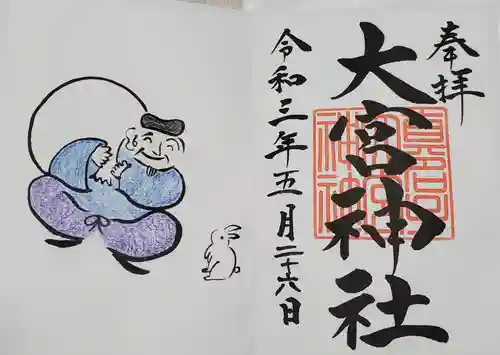 奉拝
大宮神社
令和三年五月二十六日